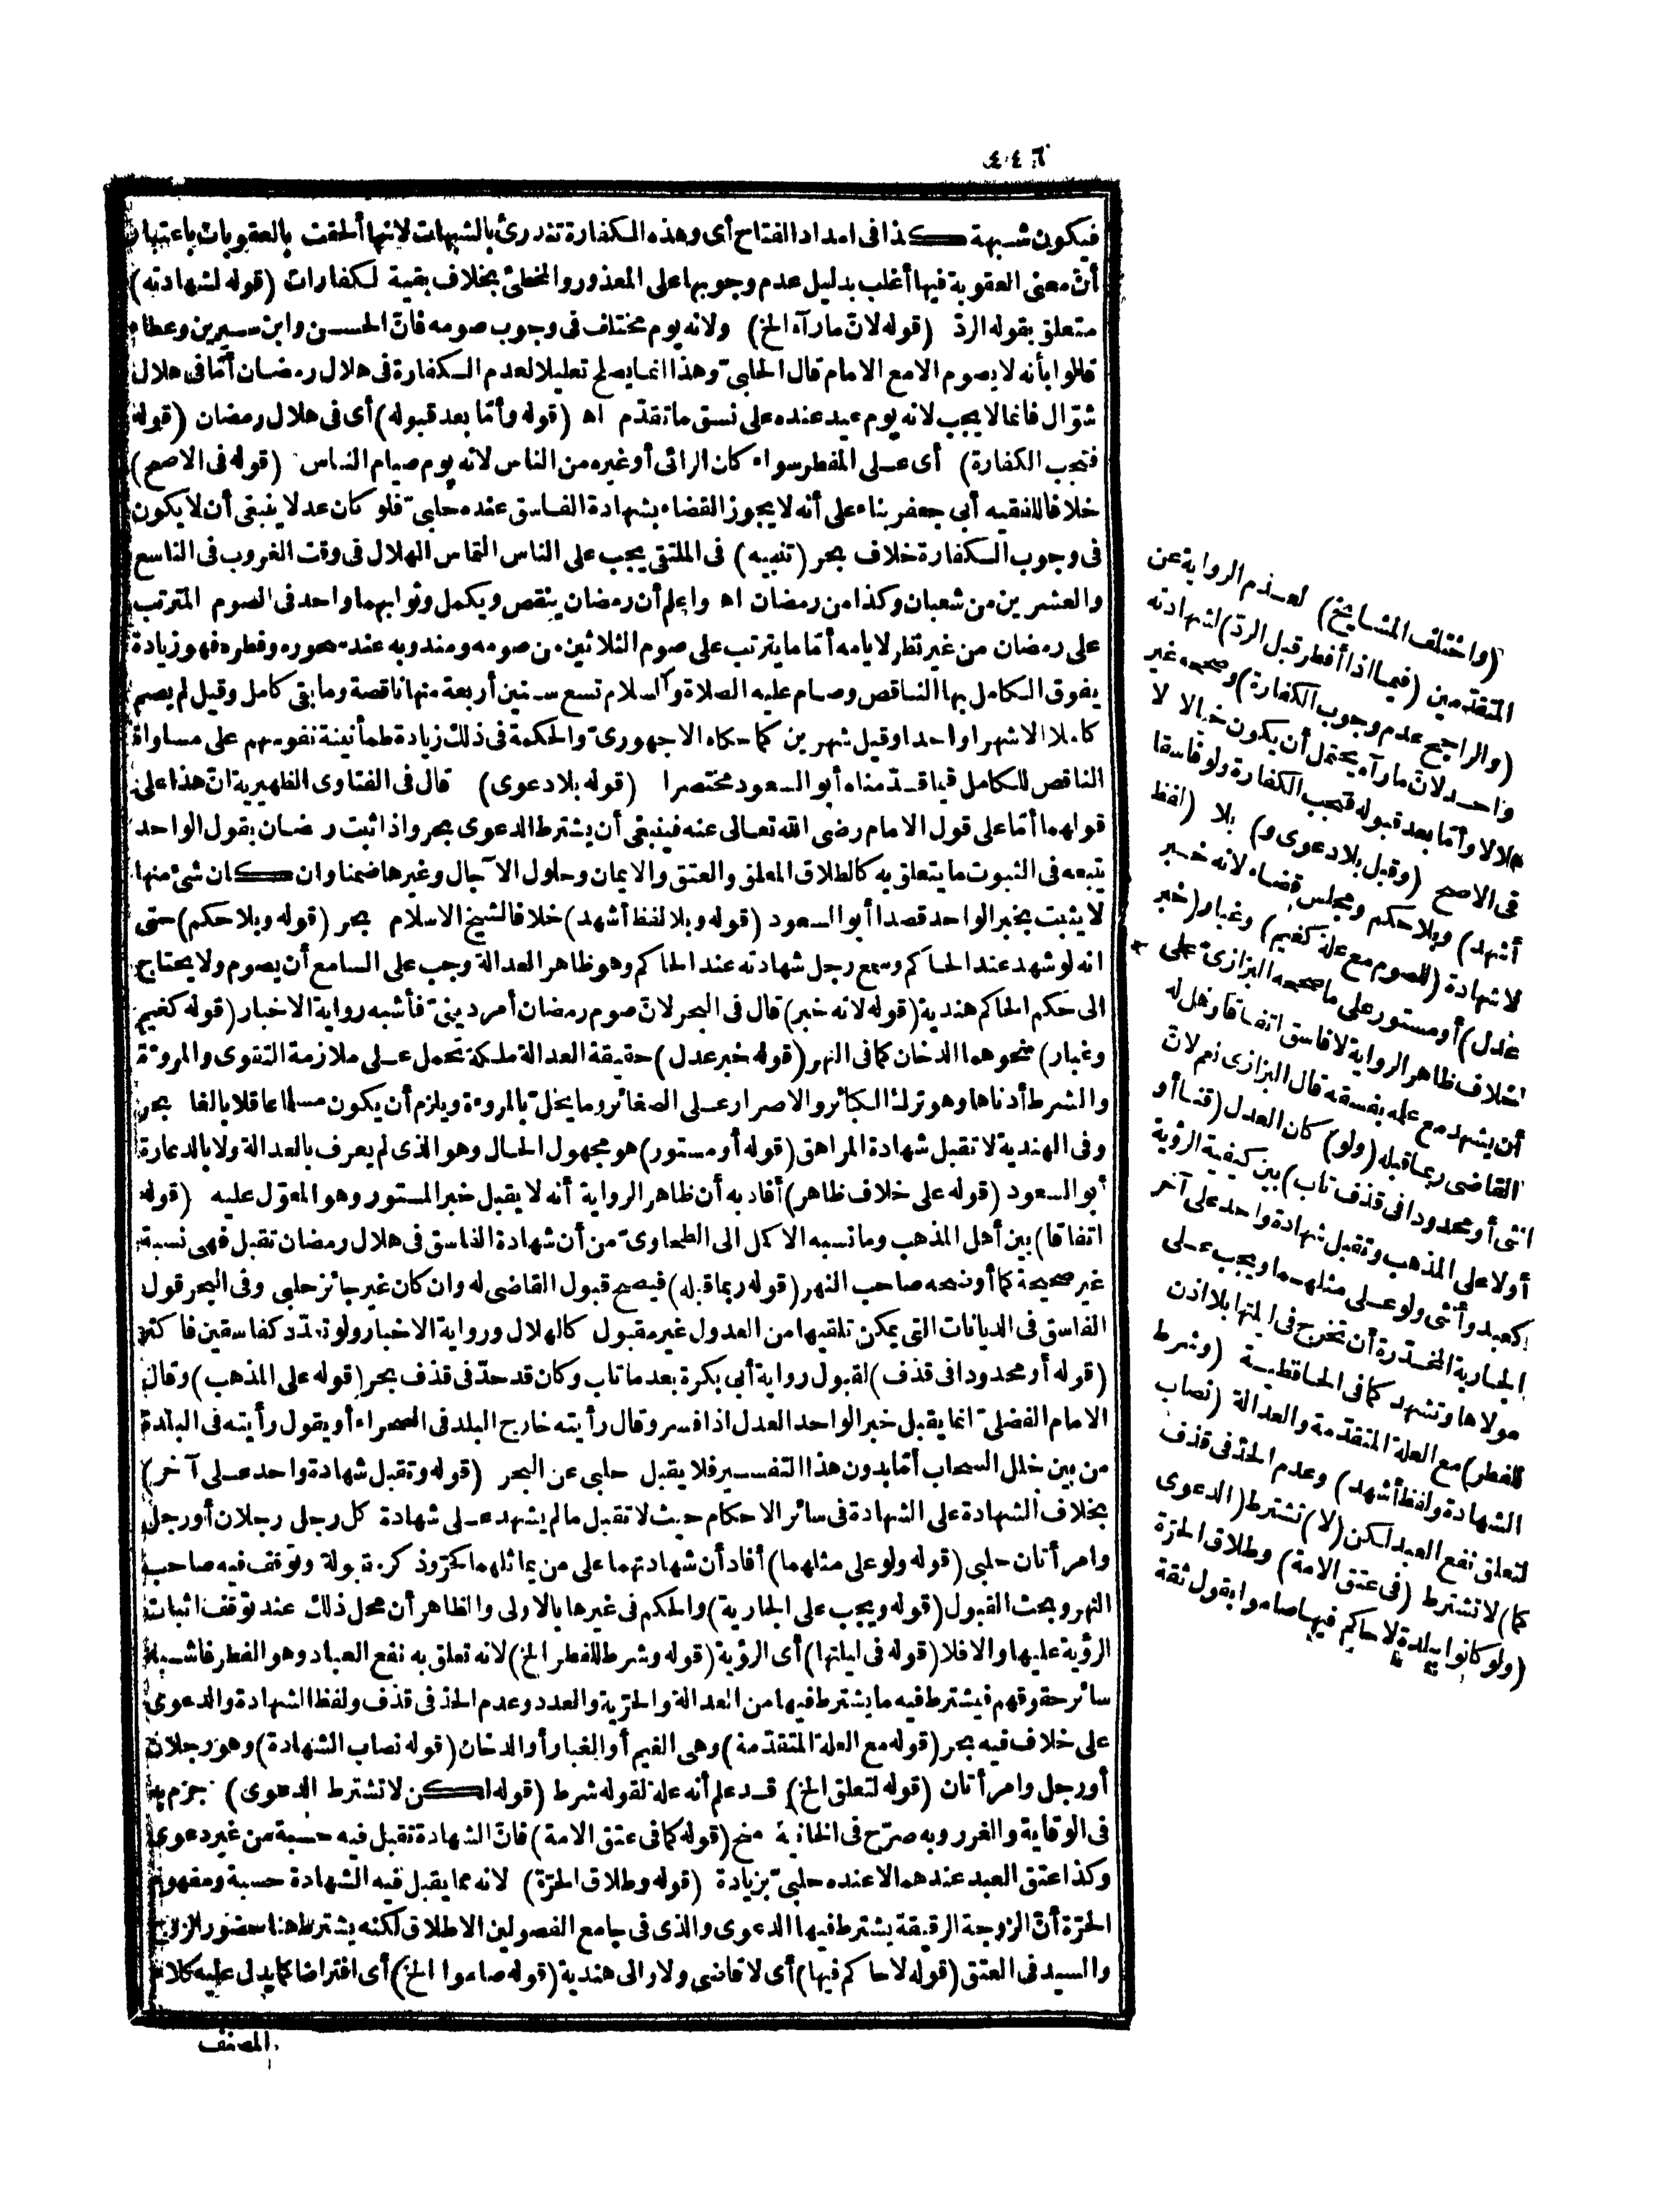 ٤٤٦
فيكون شبهة كذا فى امداد الفتاح أى وهذه الكفارة تندرئ بالشبهات لانها ألحقت بالعقوبات باعتبار
أنّ معنى العقوبة فيها أغلب بدليل عدم وجوبها على المعذور والمخطئ بخلاف بقية لكفارات (قوله لشهادته)
متعلق بقوله الردّ (قوله لانّ مارآه الخ) ولانه يوم مختلف فى وجوب صومه فانّ الحسن وابن سيرين وعطاء
قالوا بأنه لا يصوم الا مع الامام قال الحلبىّ وهذا انما يصلح تعليلا لعدم الكفارة فى هلال رمضان أمّا فى هلال
شوّال فانما لا يجب لانه يوم عيد عنده على نسق ما تقدّم اه (قوله وأمّا بعد قبوله) أى فى هلال رمضان (قوله
فتجب الكفارة) أى على المفطر سواء كان الرائى أو غيره من الناس لانه يوم صيام الناس (قوله فى الاصح)
خلافا للفقيه أبى جعفر بناء على أنه لا يجوز القضاء بشهادة الفاسق عنده حلبىّ فلو كان عدلا ينبغى أن لا يكون
فى وجوب الكفارة خلاف بحر (تنبيه) فى الملتقى يجب على الناس التماس الهلال فى وقت الغروب فى التاسع
والعشرين من شعبان وكذا من رمضان اه واعلم أن رمضان ينقص ويكمل وثوابهما واحد فى الصوم المترتب
على رمضان من غير نظر لايامه أمّا ما يترتب على صوم الثلاثين من صومه ومندوبه عند سحوره وفطره فهو زيادة
يفوق الكامل بها الناقص وصام عليه الصلاة والسلام تسع سنين أربعة منها ناقصة وما بقى كامل وقيل لم يصم
كاملا الا شهرا واحدا وقيل شهرين كما حكاه الاجهورىّ والحكمة فى ذلك زيادة طمأنينة نفوسهم على مساواة
الناقص للكامل فيما قدّمناه أبو السعود مختصرا (قوله بلا دعوى) قال فى الفتاوى الظهيرية انّ هذا على
قولهما أمّا على قول الامام رضى الله تعالى عنه فينبغى أن يشترط الدعوى بحر واذا ثبت رمضان بقول الواحد
يتبعه فى الثبوت ما يتعلق به كالطلاق المعلق والعتق والايمان وحلول الآجال وغيرها ضمنا وان كان شئ منها
لا يثبت بخبر الواحد قصدا أبو السعود (قوله وبلا لفظ أشهد) خلافا لشيخ الاسلام بحر (قوله وبلا حكم) حتى
انه لو شهد عند الحاكم وسمع رجل شهادته عند الحاكم وهو ظاهر العدالة وجب على السامع أن يصوم ولا يحتاج
الى حكم الحاكم هندية (قوله لانه خبر) قال فى البحر لانّ صوم رمضان أمر دينىّ فأشبه رواية الاخبار (قوله كغيم
وغبار) نحوهما الدخان كما فى النهر (قوله خبر عدل) حقيقة العدالة ملكة تحمل على ملازمة التقوى والمروءة
والشرط أدناها وهو ترك الكبائر والاصرار على الصغائر وما يخلّ بالمروءة ويلزم أن يكون مسلما عاقلا بالغا بحر
وفى الهندية لا تقبل شهادة المراهق (قوله أو مستور) هو مجهول الحال وهو الذى لم يعرف بالعدالة ولا بالدعارة
أبو السعود (قوله على خلاف ظاهر) أفاد به أن ظاهر الرواية أنه لا يقبل خبر المستور وهو المعوّل عليه (قوله
اتفاقا) بين أهل المذهب وما نسبه الاكمل الى الطحاوىّ من أن شهادة الفاسق فى هلال رمضان تقبل فهى نسبة
غير صحيحة كما أوضحه صاحب النهر (قوله ربما قبله) فيصح قبول القاضى له وان كان غير جائز حلبى وفى البحر قول
الفاسق فى الديانات التى يمكن تلقيها من العدول غير مقبول كالهلال ورواية الاخبار ولو تعدّد كفاسقين فاكثر
(قوله أو محدودا فى قذف) لقبول رواية أبى بكرة بعد ما تاب وكان قد حدّ فى قذف بحر (قوله على المذهب) وقال
الامام الفضلىّ انما يقبل خبر الواحد العدل اذا فسر وقال رأيته خارج البلد فى الصحراء أو يقول رأيته فى البلدة
من بين خلل السحاب أمّا بدون هذا التفسير فلا يقبل حلبى عن البحر (قوله وتقبل شهادة واحد على آخر)
بخلاف الشهادة على الشهادة فى سائر الاحكام حيث لا تقبل ما لم يشهد على شهادة كل رجل رجلان أو رجل
وامرأتان حلبى (قوله ولو على مثلهما) أفاد أن شهادتهما على من يماثلهما كحرّ وذكر مقبولة وتوقف فيه صاحب
النهر وبحث القبول (قوله ويجب على الجارية) والحكم فى غيرها بالاولى والظاهر أن محل ذلك عند توقف اثبات
الرؤية عليها والا فلا (قوله فى ليلتها) أى الرؤية (قوله وشرط للفطر الخ) لانه تعلق به نفع العباد وهو الفطر فاشبه
سائر حقوقهم فيشترط فيه ما يشترط فيها من العدالة والحرّية والعدد وعدم الحدّ فى قذف ولفظ الشهادة والدعوى
على خلاف فيه بحر (قوله مع العلة المتقدّمة) وهى الغيم أو الغبار أو الدخان (قوله نصاب الشهادة) وهو رجلان
أو رجل وامرأتان (قوله لتعلق الخ) قد علم أنه علة لقوله شرط (قوله لكن لا تشترط الدعوى) جزم به
فى الوقاية والغرر وبه صرّح فى الخانية منح (قوله كما فى عتق الامة) فانّ الشهادة تقبل فيه حسبة من غير دعوى
وكذا عتق العبد عندهما لا عنده حلبىّ بزيادة (قوله وطلاق الحرّة) لانه مما يقبل فيه الشهادة حسبة ومفهوم
الحرّة أنّ الزوجة الرقيقة يشترط فيها الدعوى والذى فى جامع الفصولين الاطلاق لكنه يشترط هنا حضور الزوج
والسيد فى العتق (قوله لا حاكم فيها) أى لا قاضى ولا والى هندية (قوله صاموا الخ) أى افتراضا كما يدل عليه كلام
المصنف
(واختلف المشايخ) لعدم الرواية عن
المتقدّمين (فيما اذا أفطر قبل الردّ) لشهادته
(والراجح عدم وجوب الكفارة) وصححه غير
واحد لانّ ما رآه يحتمل أن يكون خيالا لا
هلالا وأمّا بعد قبوله فتجب الكفارة ولو فاسقا
فى الاصح (وقبل بلا دعوى و) بلا (لفظ
أشهد) وبلا حكم ومجلس قضاء لانه خبر
لا شهادة (للصوم مع علة كغيم) وغبار (خبر
عدل) أو مستور على ما صححه البزازىّ على
خلاف ظاهر الرواية لا فاسق اتفاقا وهل له
أن يشهد مع علمه بفسقه قال البزازى نعم لانّ
القاضى ربما قبله (ولو) كان العدل (قنا أو
انثى أو محدودا فى قذف تاب) بين كيفية الرؤية
أولا على المذهب وتقبل شهادة واحد على آخر
كعبد وأنثى ولو على مثلهما ويجب على
الجارية المخدّرة أن تخرج فى ليلتها بلا اذن
مولاها وتشهد كما فى الحافظية (وشرط
للفطر) مع العلة المتقدّمة والعدالة (نصاب
الشهادة ولفظ أشهد) وعدم الحدّ فى قذف
لتعلق نفع العبد لكن (لا) تشترط (الدعوى
كما) لا تشترط (فى عتق الامة) وطلاق الحرّة
(ولو كانوا ببلدة لا حاكم فيها صاموا بقول ثقة